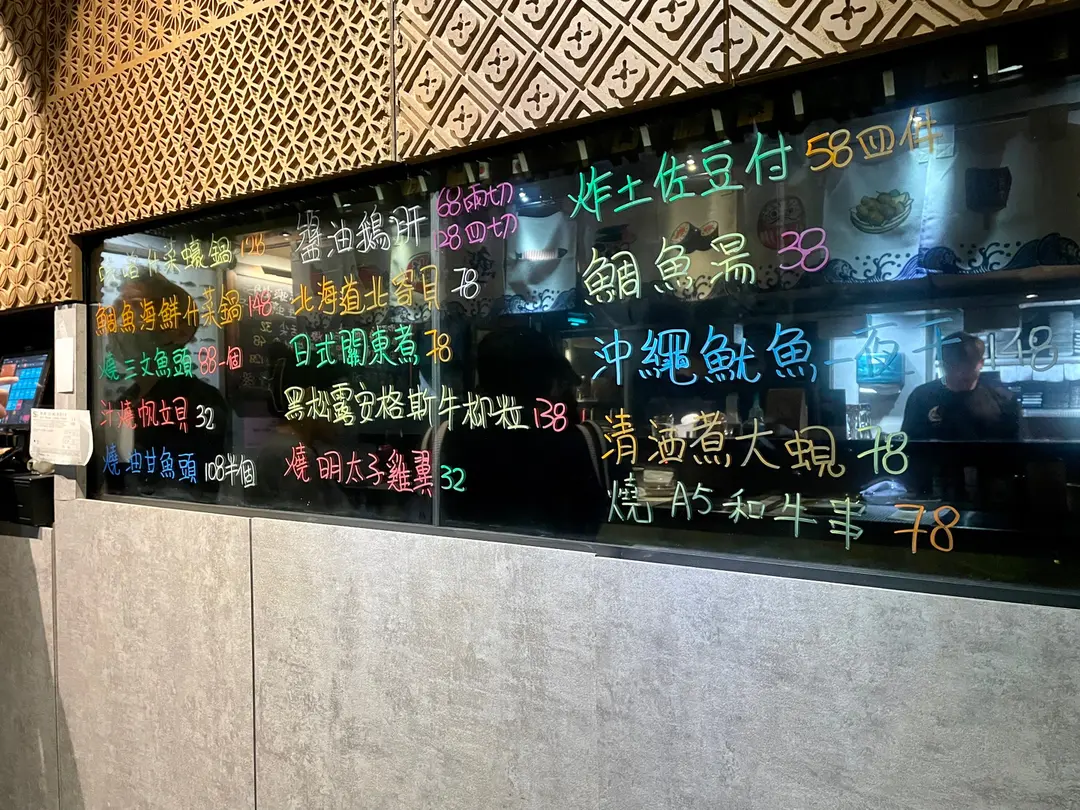 什菜蠔鍋 128
鯛魚海鮮什菜鍋 148
燒三文魚頭 88一個
汁燒帆立貝 32
燒油甘魚頭 108半個
鹽油鵝肝 68兩切
128四切
北海道北寄貝 78
日式關東煮 78
黑松露安格斯牛柳粒 138
燒明太子雞翼 32
炸土佐豆付 58四件
鯛魚湯 38
沖繩魷魚一夜干 148
清酒煮大蜆 78
燒A5和牛串 78